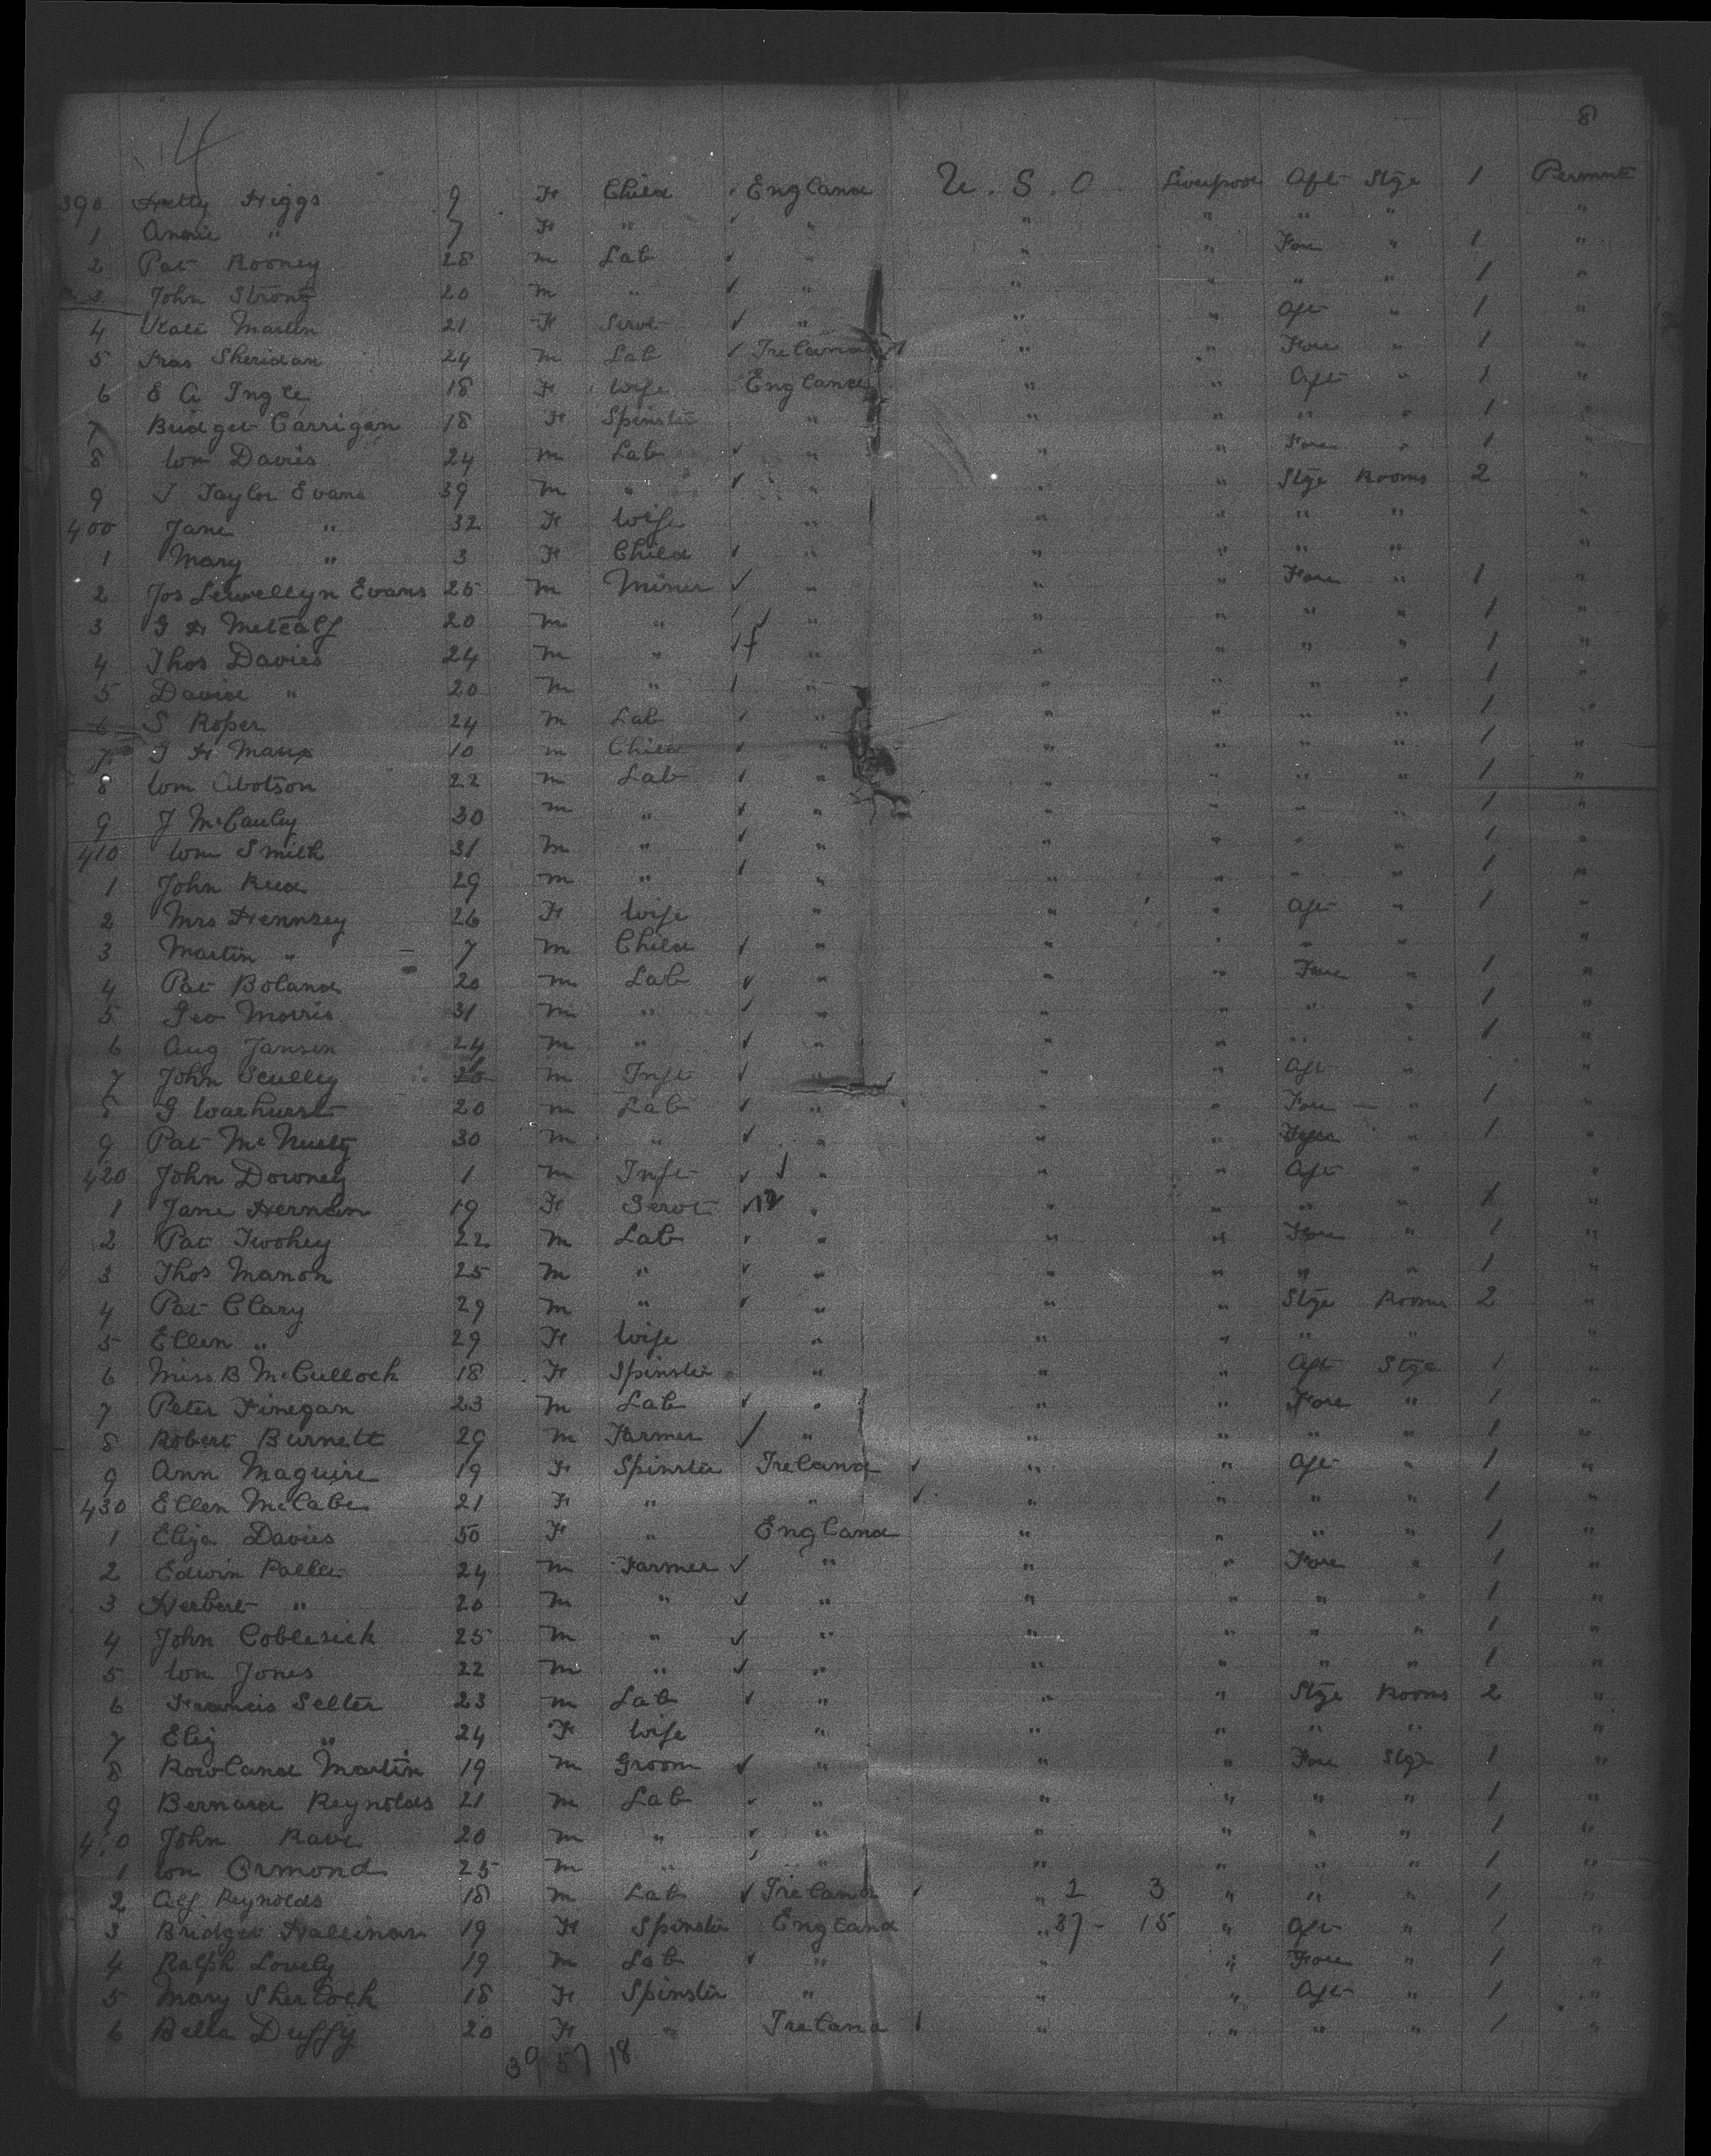 14 8
390 Hetty Higgs 9 F Child England U. S. O Liverpool Aft Stge 1 Permnt
1 Annie " 7 F " " " " " " "
2 Pat Rooney 28 m Lab " " " Fore " 1 "
3 John Strong 20 m " " " " " " 1 "
4 Kate Martin 21 F Servt " " " Aft " 1 "
5 Fras Sheridan 24 m Lab Ireland " " Fore " 1 "
6 E A Ingle 18 F Wife England " " Aft " 1 "
7 Bridget Carrigan 18 F Spinster " " " " " 1 "
8 Wm Davies 24 m Lab " " " Fore " 1 "
9 J Taylor Evans 39 m " " " " Stge Rooms 2 "
400 Jane " 32 F Wife " " " " " "
1 Mary " 3 F Child " " " " " "
2 Jos Lewellyn Evans 25 m Miner " " " Fore " 1 "
3 G H Metcalf 20 m " " " " " " 1 "
4 Thos Davies 24 m " " " " " " 1 "
5 David " 20 m " " " " " " 1 "
6 S Roper 24 m Lab " " " " " 1 "
7 J H 10 m Child " " " " " 1 "
8 Wm 22 m Lab " " " " " 1 "
9 J McCauley 30 m " " " " " " 1 "
410 Wm Smith 31 m " " " " " " 1 "
1 John Reed 29 m " " " " " " 1 "
2 Mrs Hennsey 26 F Wife " " " Aft " 1 "
3 Martin " 7 m Child " " " " " "
4 Pat Boland 20 m Lab " " " Fore " 1 "
5 Geo Morris 31 m " " " " " " 1 "
6 Aug Jansen 24 m " " " " " " 1 "
7 John Sculley m Inft " " " Aft " "
8 G Warhurst 20 m Lab " " " Fore " 1 "
9 Pat McNulty 30 m " " " " Fore " 1 "
420 John Downey 1 m Inft " " " Aft " "
1 Jane Hernan 19 F Servt " " " " " 1 "
2 Pat Twohey 22 m Lab " " " Fore " 1 "
3 Thos Manon 25 m " " " " " " 1 "
4 Pat Clary 29 m " " " " Stge Rooms 2 "
5 Ellen " 29 F Wife " " " " " "
6 Miss B McCullock 18 F Spinster " " " Aft Stge 1 "
7 Peter Finegan 23 m Lab " " " Fore " 1 "
8 Robert Burnett 29 m Farmer " " " " " 1 "
9 Ann Maguire 19 F Spinster Ireland " " Aft " 1 "
430 Ellen McCabe 21 F " " " " " " 1 "
1 Eliza Davies 50 F " England " " " " 1 "
2 Edwin 24 m Farmer " " " Fore " 1 "
3 Herbert " 20 m " " " " " " 1 "
4 John Coblesick 25 m " " " " " " 1 "
5 Wm Jones 22 m " " " " " " 1 "
6 Francis Selter 23 m Lab " " " Stge Rooms 2 "
7 Eliz " 24 F Wife " " " " " "
8 Rowland Martin 19 m Groom " " " Fore Stge 1 "
9 Bernard Reynolds 21 m Lab " " " " " 1 "
440 John 20 m " " " " " " 1 "
1 Wm Ormond 25 m " " " " " " 1 "
2 Alf Reynolds 18 m Lab Ireland " 1 3 " " " 1 "
3 Bridget Hallinan 19 F Spinster England " 37 - 15 " Aft " 1 "
4 Ralph Lovely 19 m Lab " " " Fore " 1 "
5 Mary Sherlock 18 F Spinster " " " Aft " 1 "
6 Bella Duffy 20 F " Ireland " " " " 1 "
39 57 18